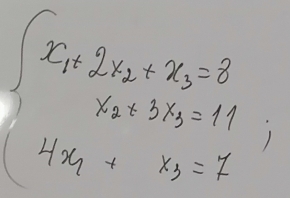 x₁ + 2x₂ + x₃ = 8
x₂ + 3x₃ = 11
4x₁ + x₃ = 7 ;